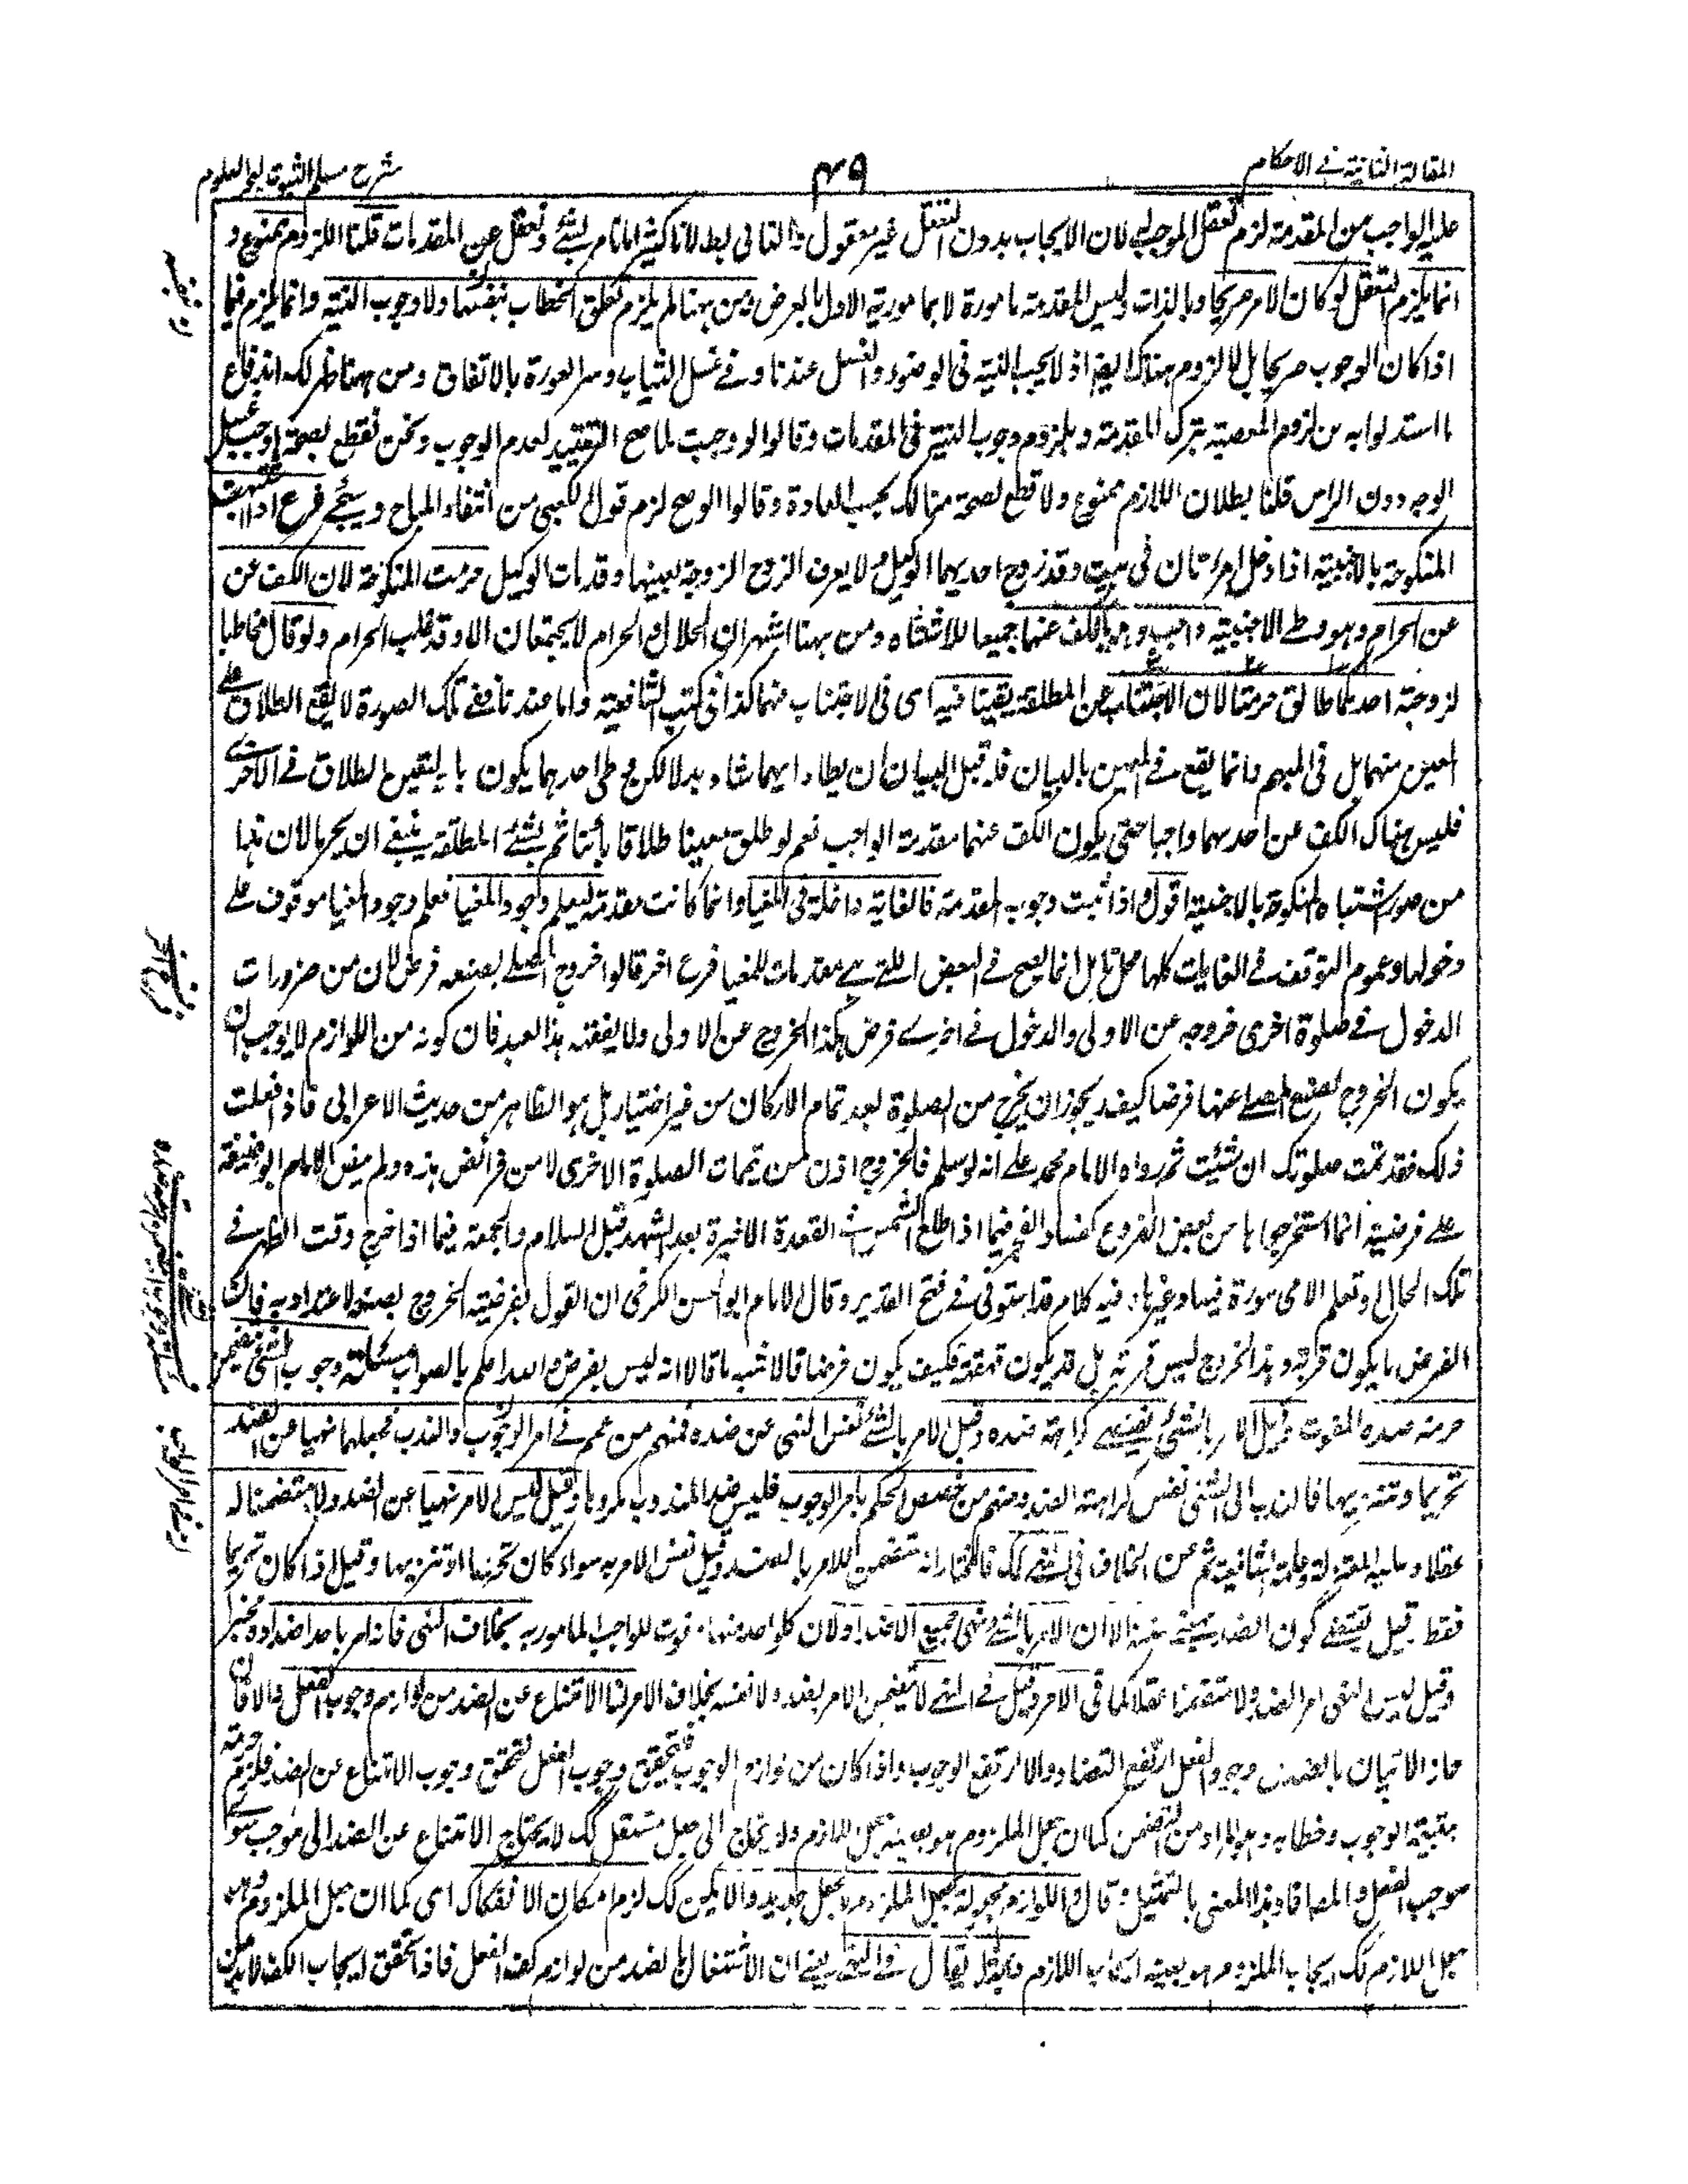 المقالة الثانية في الاحكام
٤٩
شرح مسلم الثبوت لبحر العلوم
عليه الواجب من المقدمة لزم تعقل الموجب لان الايجاب بدون التعقل غير معقول والتالى بط لانا كثيرا ما نامر بشئ ونغفل عن المقدمات قلنا اللزوم ممنوع و
انما يلزم التعقل لو كان الامر صريحا وبالذات وليس المقدمة مامورة الا بمامورية الاول بالعرض ومن ههنا لم يلزم تعلق الخطاب بنفسها ولا وجوب النية وانما يلزم فيما
اذا كان الوجوب صريحا بل لا لزوم هناك ايضا اذ لا يجب النية فى الوضوء والغسل عندنا وفي غسل الثياب وستر العورة بالاتفاق ومن ههنا ظهر لك اندفاع
ما استدلوا به من لزوم المعصية بترك المقدمة ويلزم وجوب النية فى المقدمات وقالوا لو وجبت لما صح التقييد لعدم الوجوب ونحن نقطع بصحة اوجبت غسل
الوجه دون الراس قلنا بطلان اللازم ممنوع ولا قطع بصحة هنالك بحسب العادة وقالوا لو صح لزم قول الكعبى من انتفاء المباح وسيجئ فرع اذا اشتبهت
المنكوحة بالاجنبية اذا دخل امراتان فى بيت وقد زوج احديهما الوكيل ولا يعرف الزوج الزوجة بعينها وقد مات الوكيل حرمت المنكوحة لان الكف عن
عن الحرام وهو وطي الاجنبية واجب وهو بالكف عنهما جميعا للاشتباه ومن ههنا اشتهر ان الحلال والحرام لا يجتمعان الا وقد غلب الحرام ولو قال مخاطبا
لزوجته احدكما طالق حرمتا لان الاجتناب عن المطلقة يقينا فيه اى فى الاجتناب منهما كذا فى كتب الشافعية واما عندنا ففي تلك الصورة لا يقع الطلاق على
المعين منهما بل فى المبهم وانما يقع في المعين بالبيان فله قبل البيان ان يطاء ايهما شاء بدلا لكن وطى احدهما يكون بيانا لتعين الطلاق في الاخرى
فليس هناك الكف عن احدهما واجبا حتى يكون الكف عنهما مقدمة الواجب نعم لو طلق معينا طلاقا بائنا ثم نسى المطلقة ينبغى ان يحرما لان هذا
من صور اشتباه المنكوحة بالاجنبية اقول اذا ثبت وجوب المقدمة فالغاية داخلة فى المغيا وانما كانت مقدمة ليعلم وجود المغيا فعلم وجود المغيا موقوف على
دخولها وعموم التوقف في الغايات كلها محل تامل انما يصح في البعض اللتى هى مقدمات للمغيا فرع اخر قالوا خروج المصلى بصنعه فرض لان من ضرورات
الدخول في صلوة اخرى خروجه عن الاولى والدخول في اخرى فرض فكذا الخروج عن الاولى ولا يفقه هذا العبد فان كونه من اللوازم لا يوجب ان
يكون الخروج بصنع المصلى عنها فرضا كيف ويجوز ان يخرج من الصلوة بعد تمام الاركان من غير اختيار بل هو الظاهر من حديث الاعرابى فاذا فعلت
ذلك فقد تمت صلوتك ان شئت ثم رواه الامام محمد على انه لو سلم فالخروج اذن من تتمات الصلوة الاخرى لا من فرائض هذه ولم ينص الامام ابو حنيفة
على فرضيته انما استخرجوها من بعض الفروع كفساد الفجر فيما اذا طلع الشمس في القعدة الاخيرة بعد التشهد قبل السلام والجمعة فيما اذا خرج وقت الظهر في
تلك الحال وتعلم الامى سورة فيها وغيرها وفيه كلام قد استوفى في فتح القدير وقال الامام ابو الحسن الكرخى ان القول بفرضية الخروج بصنعه لا عبرة به فان
الفرض ما يكون قربة وهذا الخروج ليس قربة بل قد يكون قهقهة فكيف يكون فرضا فالاشبه ما قالا انه ليس بفرض والله اعلم بالصواب مسئلة وجوب الشئ يتضمن
حرمة ضده المفوت وقيل الامر بالشئ يقتضى كراهة ضده وقيل الامر بالشئ نفس النهى عن ضده فمنهم من عمم في امر الوجوب والندب فجعلهما نهيا عن الضد
تحريما وتنزيها فالندب الى الشئ نفس كراهة الضد ومنهم من خصص الحكم بامر الوجوب فليس ضد المندوب مكروها وقيل ليس الامر نهيا عن الضد ولا متضمنا له
عقلا وعليه المعتزلة وعامة الشافعية ثم عن الخلاف فى النهى كك فالمختار انه متضمن للامر بالضد وقيل نفس الامر به سواء كان تحريما او تنزيها وقيل اذا كان تحريما
فقط وقيل يقتضى كون الضد سنة الا ان الامر بالشئ نهى جميع الاضداد لان كلا واحد منها مفوت للواجب المامور به بخلاف النهى فانه امر باحد اضداده مخيرا
وقيل ليس النهى امر الضد ولا متضمنا عقلا كما فى الامر وقيل في النهى لا يتضمن الامر بضده ولا نفسه بخلاف الامر لنا الامتناع عن الضد من لوازم وجوب الفعل والا فان
جاز الاتيان بالضد ووجد الفعل ارتفع التضاد والا ارتفع الوجوب واذا كان من لوازم الوجوب فيتحقق وجوب الفعل لتحقق وجوب الامتناع عن الضد فيلزم حرمة
بتبعية الوجوب وخطابه وهو المراد من التضمن كما ان جعل الملزوم هو بعينه جعل اللازم ولا يحتاج الى جعل مستقل كك لا يحتاج الامتناع عن الضد الى موجب سوى
موجب الفعل والمصافاد هذا المعنى بالتمثيل وقال واللوازم مجعولة بجعل الملزوم لا بجعل جديد والا يكن كك لزم امكان الانفكاك اى كما ان جعل الملزوم هو
جعل اللازم كك ايجاب الملزوم هو بعينه ايجاب اللازم وبمثله يقال في النهى يعنى ان الاشتغال بالضد من لوازم كف الفعل فاذا تحقق ايجاب الكف لا بد من